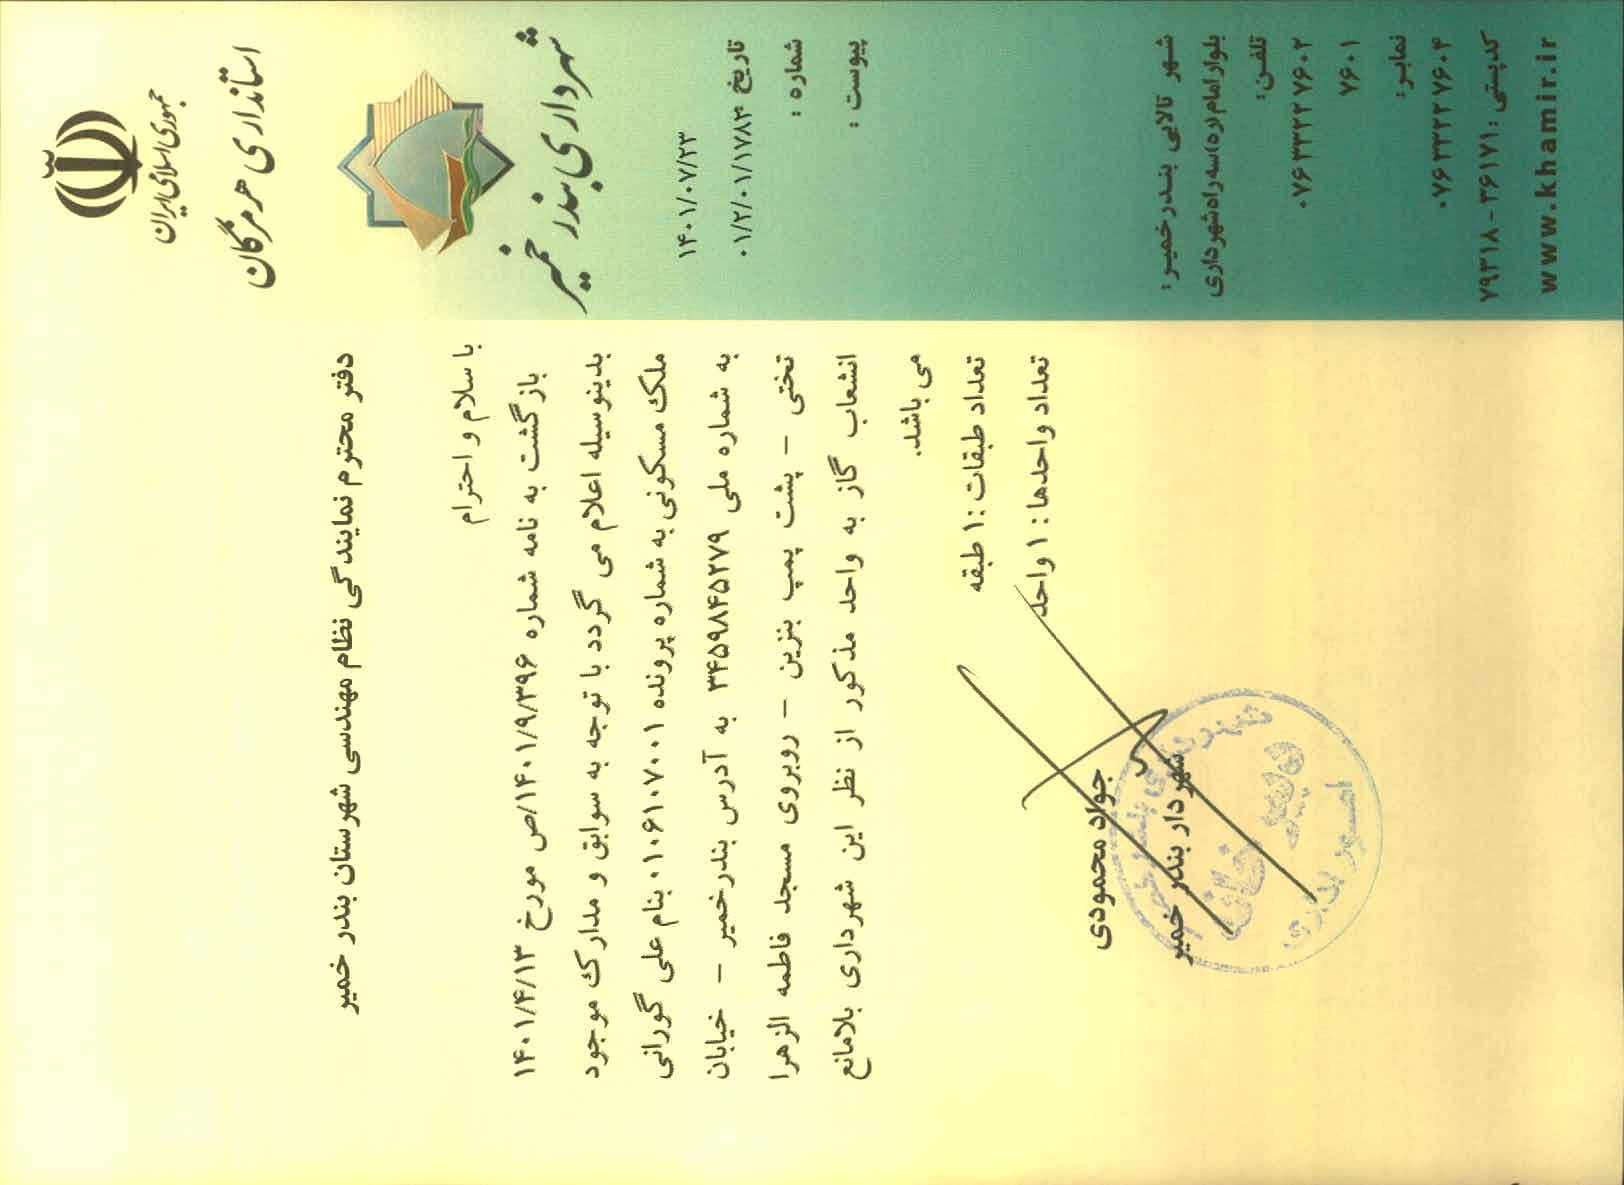 جمهوری اسلامی ایران
استانداری هرمزگان
شهرداری بندر خمیر
۱۴۰۱/۰۷/۲۳
تاریخ
۰۱/۲/۰۱/۱۷۸۳
شماره :
پیوست :
دفتر محترم نمایندگی نظام مهندسی شهرستان بندر خمیر
با سلام و احترام
بازگشت به نامه شماره ۱۴۰۱/۹/۳۹۶/ص مورخ ۱۴۰۱/۴/۱۳
بدینوسیله اعلام می گردد با توجه به سوابق و مدارک موجود
ملک مسکونی به شماره پرونده ۰۱۰۶۱۰۷۰۰۱ بنام علی گورانی
به شماره ملی ۳۴۵۹۸۴۵۲۷۹ به آدرس بندرخمیر - خیابان
تختی - پشت پمپ بنزین - روبروی مسجد فاطمه الزهرا
انشعاب گاز به واحد مذکور از نظر این شهرداری بلامانع
می باشد.
تعداد طبقات : ۱ طبقه
تعداد واحدها : ۱ واحد
جواد محمودی
شهردار بندر خمیر
شهر تالابی بندرخمیر:
بلوار امام (ره) سه راه شهرداری
تلفن:
۰۷۶۳۳۲۲۷۶۰۲
۷۶۰۱
نمابر:
۰۷۶۳۳۲۲۷۶۰۴
کدپستی : ۳۶۱۷۱ - ۷۹۳۱۸
www.khamir.ir